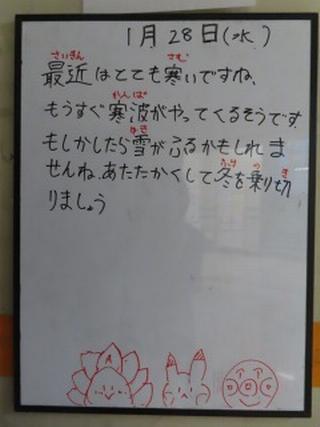 1月28日(水)
さいきん さむ
最近はとても寒いですね、
かんぱ
もうすぐ寒波がやってくるそうです.
ゆき
もしかしたら雪がふるかもしれま
ふゆ の き
せんね。あたたかくして冬を乗り切
りましょう